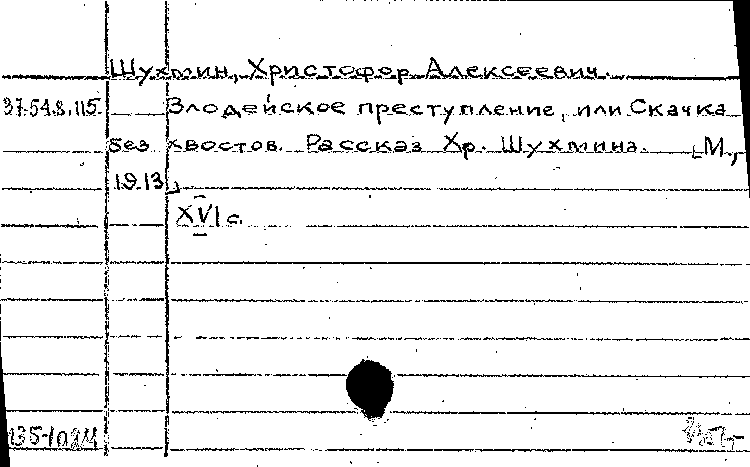 Шухмин, Христофор Алексеевич.
37.54.8.115 Злодейское преступление, или Скачка
без хвостов. Рассказ Хр. Шухмина. [М.,
1913]
XVI с.